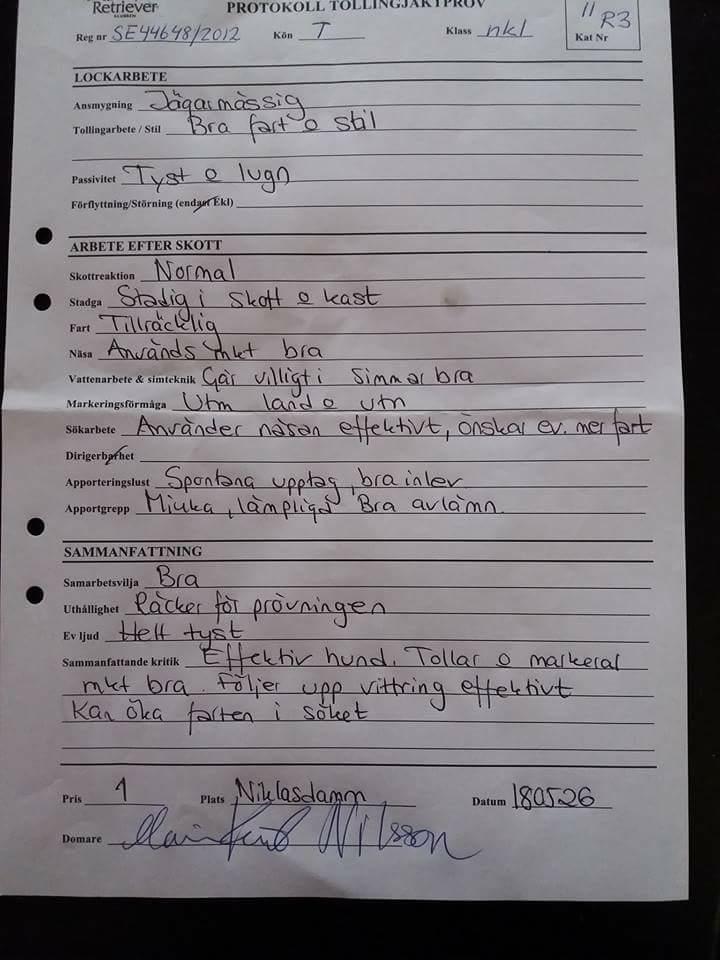 Retriever
KLUBBEN
PROTOKOLL TOLLINGJAKTPROV
Reg nr SE44648/2012 Kön T Klass nkl
11 R3
Kat Nr
LOCKARBETE
Ansmygning Jägarmässig
Tollingarbete / Stil Bra fart o stil
Passivitet Tyst o lugn
Förflyttning/Störning (endast Ekl)
ARBETE EFTER SKOTT
Skottreaktion Normal
Stadga Stadig i skott o kast
Fart Tillräcklig
Näsa Används mkt bra
Vattenarbete & simteknik Går villigt i simmar bra
Markeringsförmåga Utm land o utn
Sökarbete Använder näsan effektivt, önskar ev. mer fart
Dirigerbarhet
Apporteringslust Spontana upptag, bra inlev
Apportgrepp Mjuka, lämpliga Bra avlämn.
SAMMANFATTNING
Samarbetsvilja Bra
Uthållighet Räcker för prövningen
Ev ljud Helt tyst
Sammanfattande kritik Effektiv hund. Tollar o markerar
mkt bra. Följer upp vittring effektivt
Kan öka farten i söket
Pris 1 Plats Niklasdamm Datum 180526
Domare Nilsson